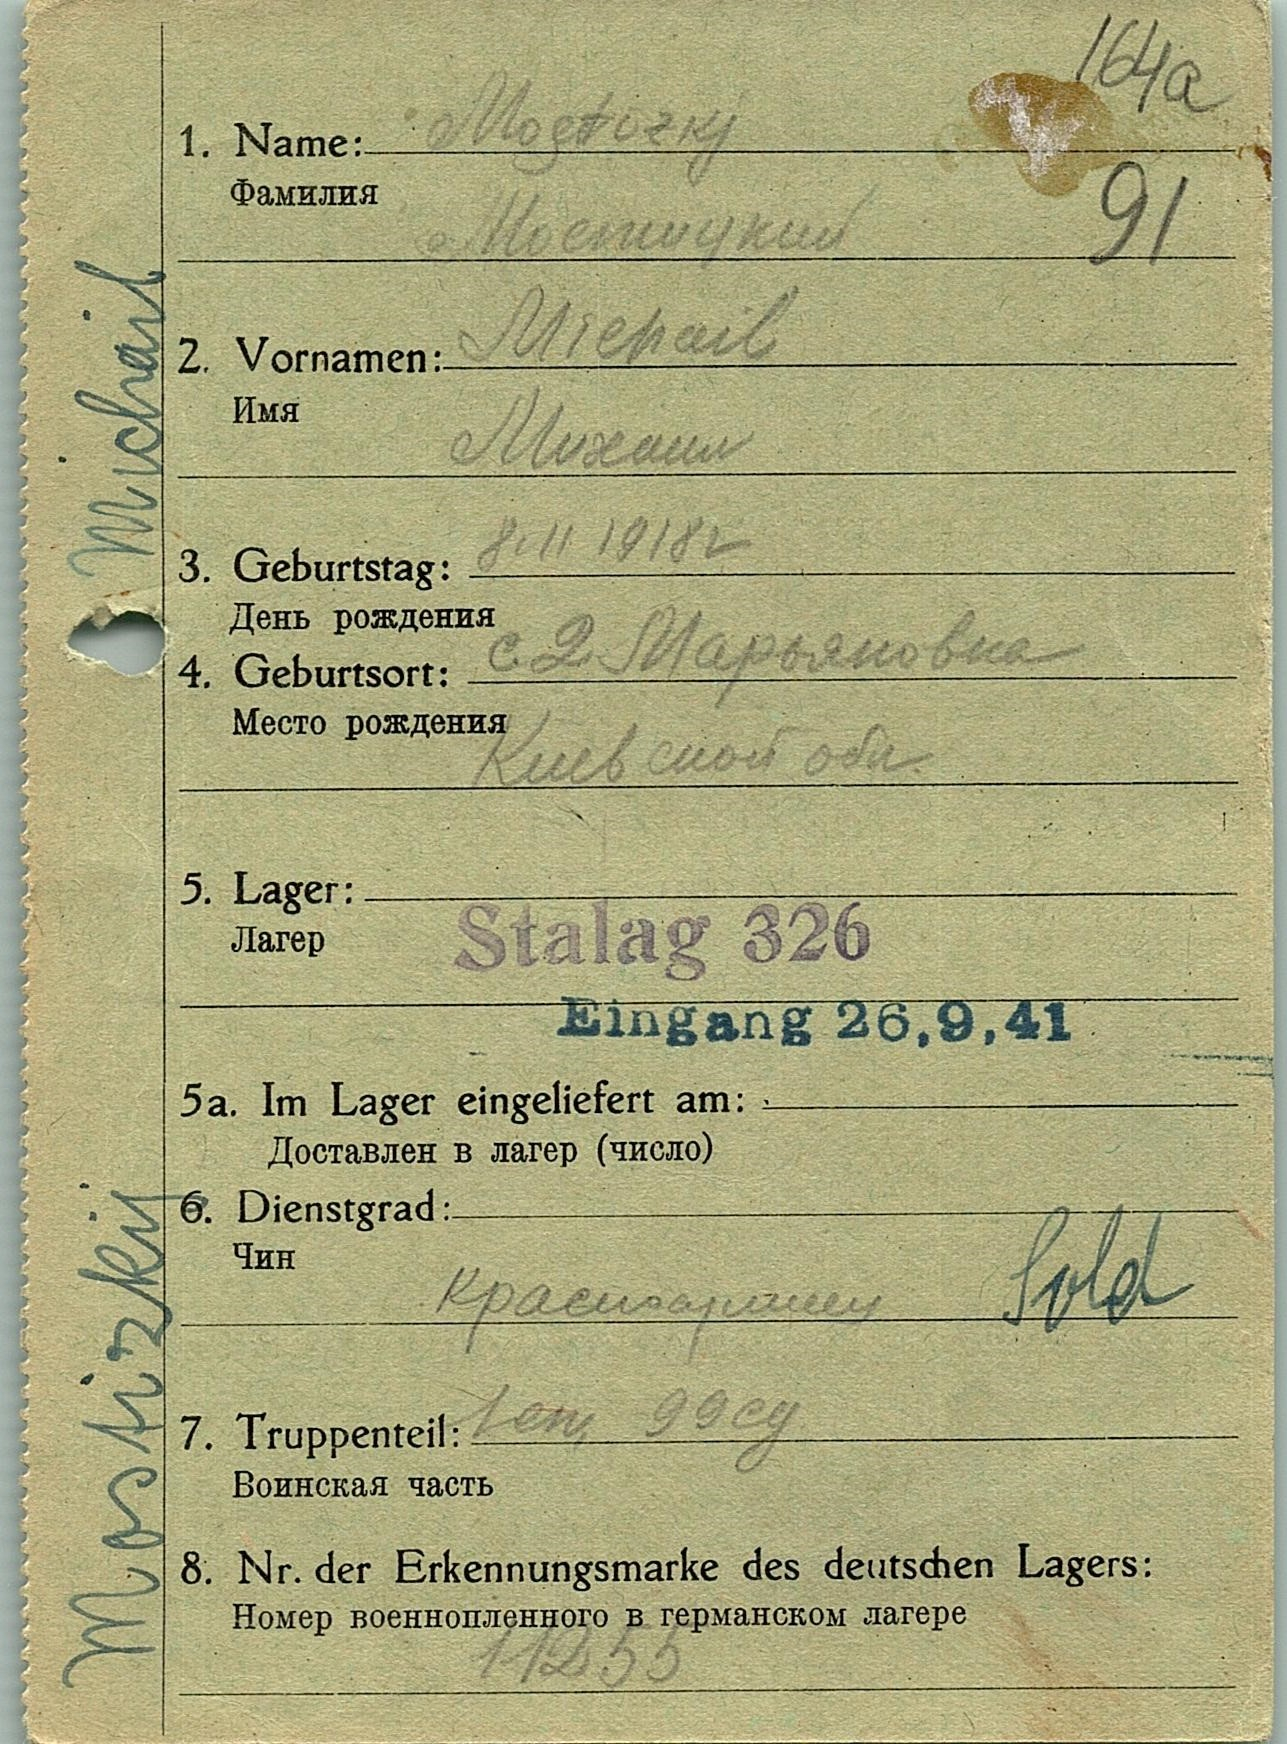 164a
1. Name: Mostozkj
Фамилия
Мостицкий
91
2. Vornamen: Michail
Имя
Михаил
3. Geburtstag: 8.II 1918г
День рождения
4. Geburtsort: с. 2. Марьяновка
Место рождения
Киевской обл.
5. Lager:
Лагер
Stalag 326
Eingang 26.9.41
5a. Im Lager eingeliefert am:
Доставлен в лагер (число)
6. Dienstgrad:
Чин
Красноармеец
Sold
7. Truppenteil: 99
Воинская часть
8. Nr. der Erkennungsmarke des deutschen Lagers:
Номер военнопленного в германском лагере
11255
Mostizkij Michail